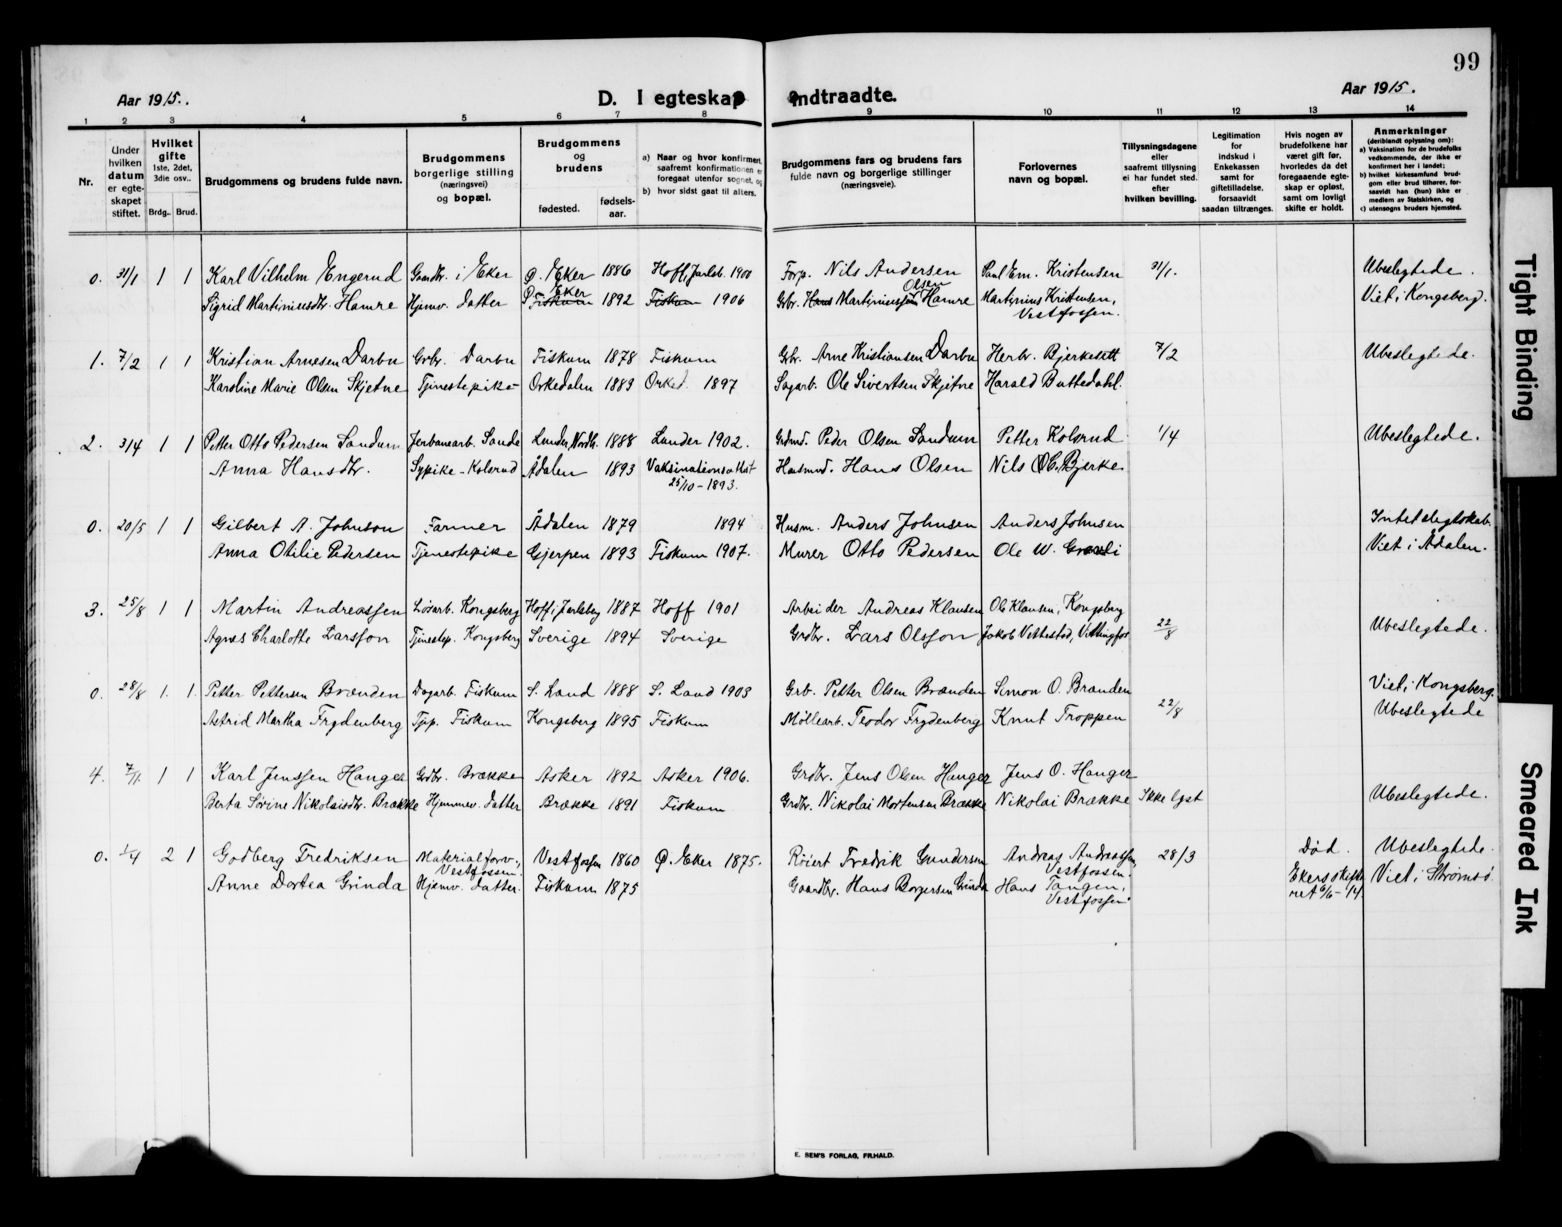 99
Aar 1915.
D. I egteskap indtraadte.
Aar 1915.
1 2 3 4 5 6 7 8 9 10 11 12 13 14
Nr.
Under hvilken datum er egteskapet stiftet.
Hvilket gifte
1ste, 2det, 3die osv.
Brdg. Brud.
Brudgommens og brudens fulde navn.
Brudgommens borgerlige stilling (næringsvei) og bopæl.
Brudgommens og brudens
fødested. fødselsaar.
a) Naar og hvor konfirmert, saafremt konfirmationen er foregaat utenfor sognet, og
b) hvor sidst gaat til alters.
Brudgommens fars og brudens fars fulde navn og borgerlige stillinger (næringsveie).
Forlovernes navn og bopæl.
Tillysningsdagene eller saafremt tillysning ei har fundet sted. efter hvilken bevilling.
Legitimation for indskud i Enkekassen samt for giftetilladelse, forsaavidt saadan tiltrænges.
Hvis nogen av brudefolkene har været gift før, hvorledes da det foregaaende egteskap er opløst, samt om lovligt skifte er holdt.
Anmerkninger
(deriblandt oplysning om):
a) Vaksination for de brudefolks vedkommende, der ikke er konfirmert her i landet;
b) hvilket kirkesamfund brudgom eller brud tilhører, forsaavidt han (hun) ikke er medlem av Statskirken, og
c) utensogns bruders hjemsted.
0. 31/1 1 1 Karl Vilhelm Engerud Gaardbr. i Eker Ø. Eker 1886 Hoff, Jarlsb. 1900 Forp. Nils Andersen Paul Em. Kristensen 31/1. Ubeslegtede.
Sigrid Martiniusdtr. Hamre Hjemv. datter Ø. Fiskum Eker 1892 Fiskum 1906 Gbr. Hans Martiniussen Olsen Hamre Martinius Kristensen, Vestfossen. Viet i Kongsberg.
1. 7/2 1 1 Kristian Arnesen Darbu Grbr. Darbu Fiskum 1878 Fiskum Gbr. Arne Kristiansen Darbu Herbr. Bjerkesett 7/2 Ubeslegtede.
Karoline Marie Olsen Skjetne Tjenestepike Orkedalen 1883 Orked. 1897 Sagarb. Ole Sivertsen Skjetne Harald Buttedahl.
2. 3/4 1 1 Petter Otto Pedersen Sandum Jerbanearb. Sande Lunder, Nordh. 1888 Lunder 1902. Grdmd. Peder Olsen Sandum Petter Kolsrud 1/4 Ubeslegtede.
Anna Hansdtr. Sypike - Kolsrud Ådalen 1893 Vaksinationsattest 25/10-1893. Husmd. Hans Olsen Nils Ol. Bjerke
0. 20/5 1 1 Gilbert A. Johnson Farmer Ådalen 1879 1894 Husm. Anders Johnsen Anders Johnsen Intet slegtskab.
Anna Otilie Pedersen Tjenestepike Gjerpen 1893 Fiskum 1907. Murer Otto Pedersen Ole W. Viet i Ådalen.
3. 25/8 1 1 Martin Andreassen Løsarb. Kongsberg Hoff i Jarlsberg 1887 Hoff 1901 Arbeider Andreas Klausen Ole Klausen, Kongsberg
Agnes Charlotte Larsson Tjenestep. Kongsberg Sverige 1894 Sverige Grdbr. Lars Olsson Jakob Vettestad, Vittingfos 22/8 Ubeslegtede.
0. 28/8 1 1 Petter Pettersen Brænden Dagarb. Fiskum S. Land 1888 S. Land 1903 Grb. Petter Olsen Brænden Simon O. Brænden 22/8 Viet i Kongsberg.
Astrid Martha Frydenberg Tjp. Fiskum Kongsberg 1895 Fiskum Møllearb. Teodor Frydenberg Knut Troppen Ubeslegtede
4. 7/11 1 1 Karl Jenssen Hanger Grdbr. Brække Asker 1892 Asker 1906. Grdbr. Jens Olsen Hanger Jens O. Hanger
Berta Sørine Nikolaisdtr. Brække Hjemmev. datter Brække 1891 Fiskum Grdbr. Nikolai Mortensen Brække Nikolai Brække Ikke lyst Ubeslegtede.
0. 1/4 2 1 Godberg Fredriksen Materialforv., Vestfossen. Vestfossen 1860 Ø. Eker 1875. Fredrik Gundersen Andreas Andreassen Vestfossen. 28/3 Død. Ubeslegtede.
Anne Dortea Grinda Hjemv. datter. Fiskum 1875 Gaardbr. Hans Borgersen Grinda Hans Tangen, Vestfossen. Ekers skifteret 6/6-14. Viet i Strømsø.
E. SEM'S FORLAG, FR.HALD.
Tight Binding
Smeared Ink